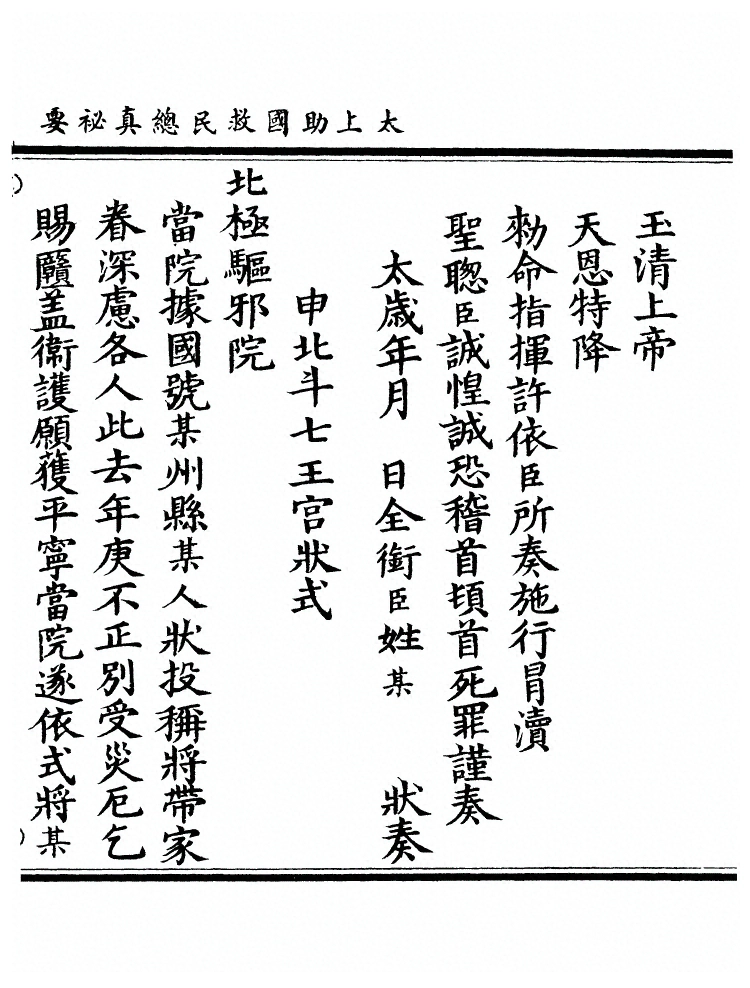 太上助國救民總真祕要
玉清上帝
天恩特降
勑命指揮許依臣所奏施行冒瀆
聖聦臣誠惶誠恐稽首頓首死罪謹奏
太歲年月　日全銜臣姓某　狀奏
申北斗七王宫狀式
北極驅邪院
當院據國號某州縣某人狀投稱將帶家
眷深慮各人此去年庚不正別受災厄乞
賜蓋衛護願獲平寧當院遂依式將某